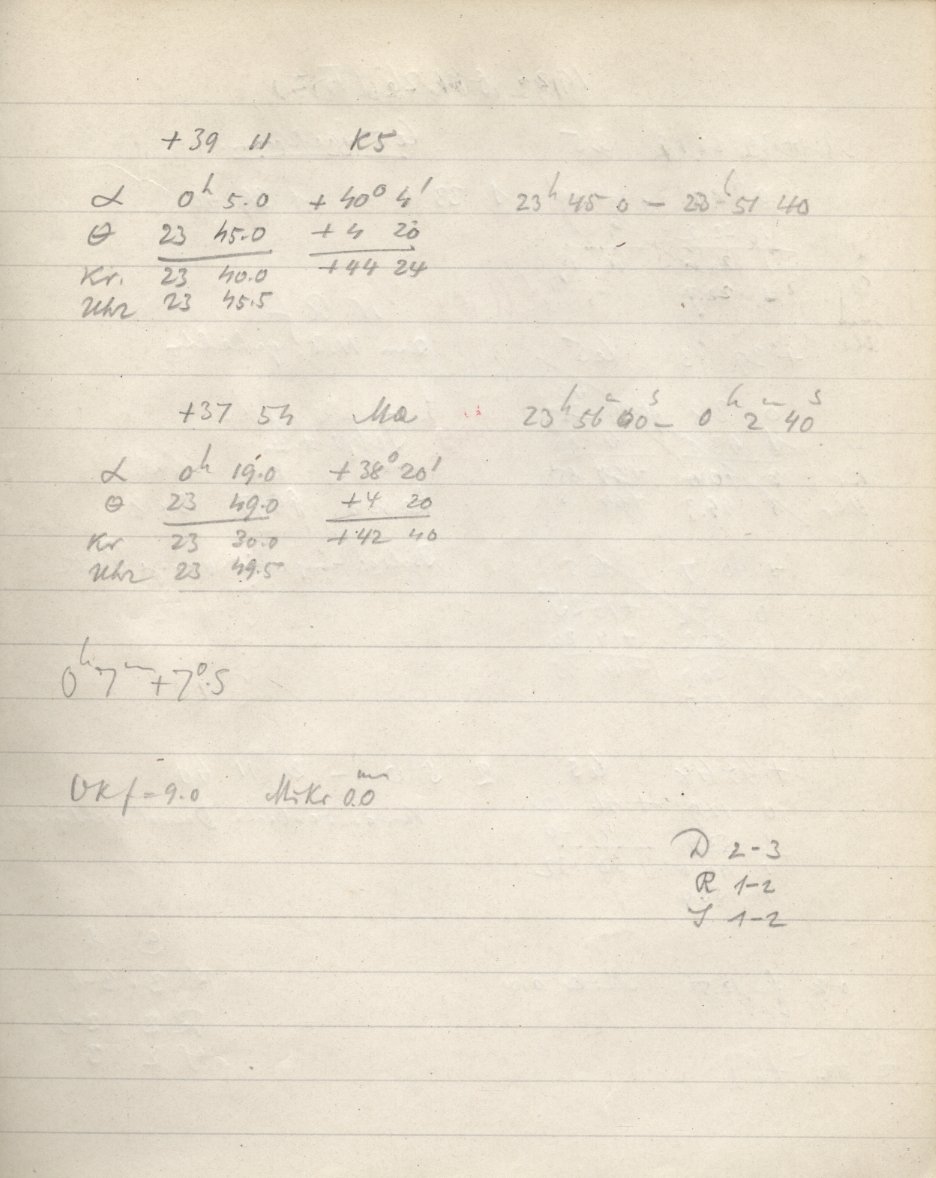 +39 11 K5
α 0h 5.0 +40° 4' 23h 45 0 – 23h 51 40
θ 23 45.0 +4 20
Kr. 23 40.0 +44 24
Uhr 23 45.5
+37 54 Ma 23h 56m 00 – 0h 2m 40s
α 0h 19.0 +38° 20'
θ 23 49.0 +4 20
Kr 23 30.0 +42 40
Uhr 23 49.5
0h 7m +7°.5
OKf = 9.0 Mikr 0.0mm
D 2-3
R 1-2
S 1-2